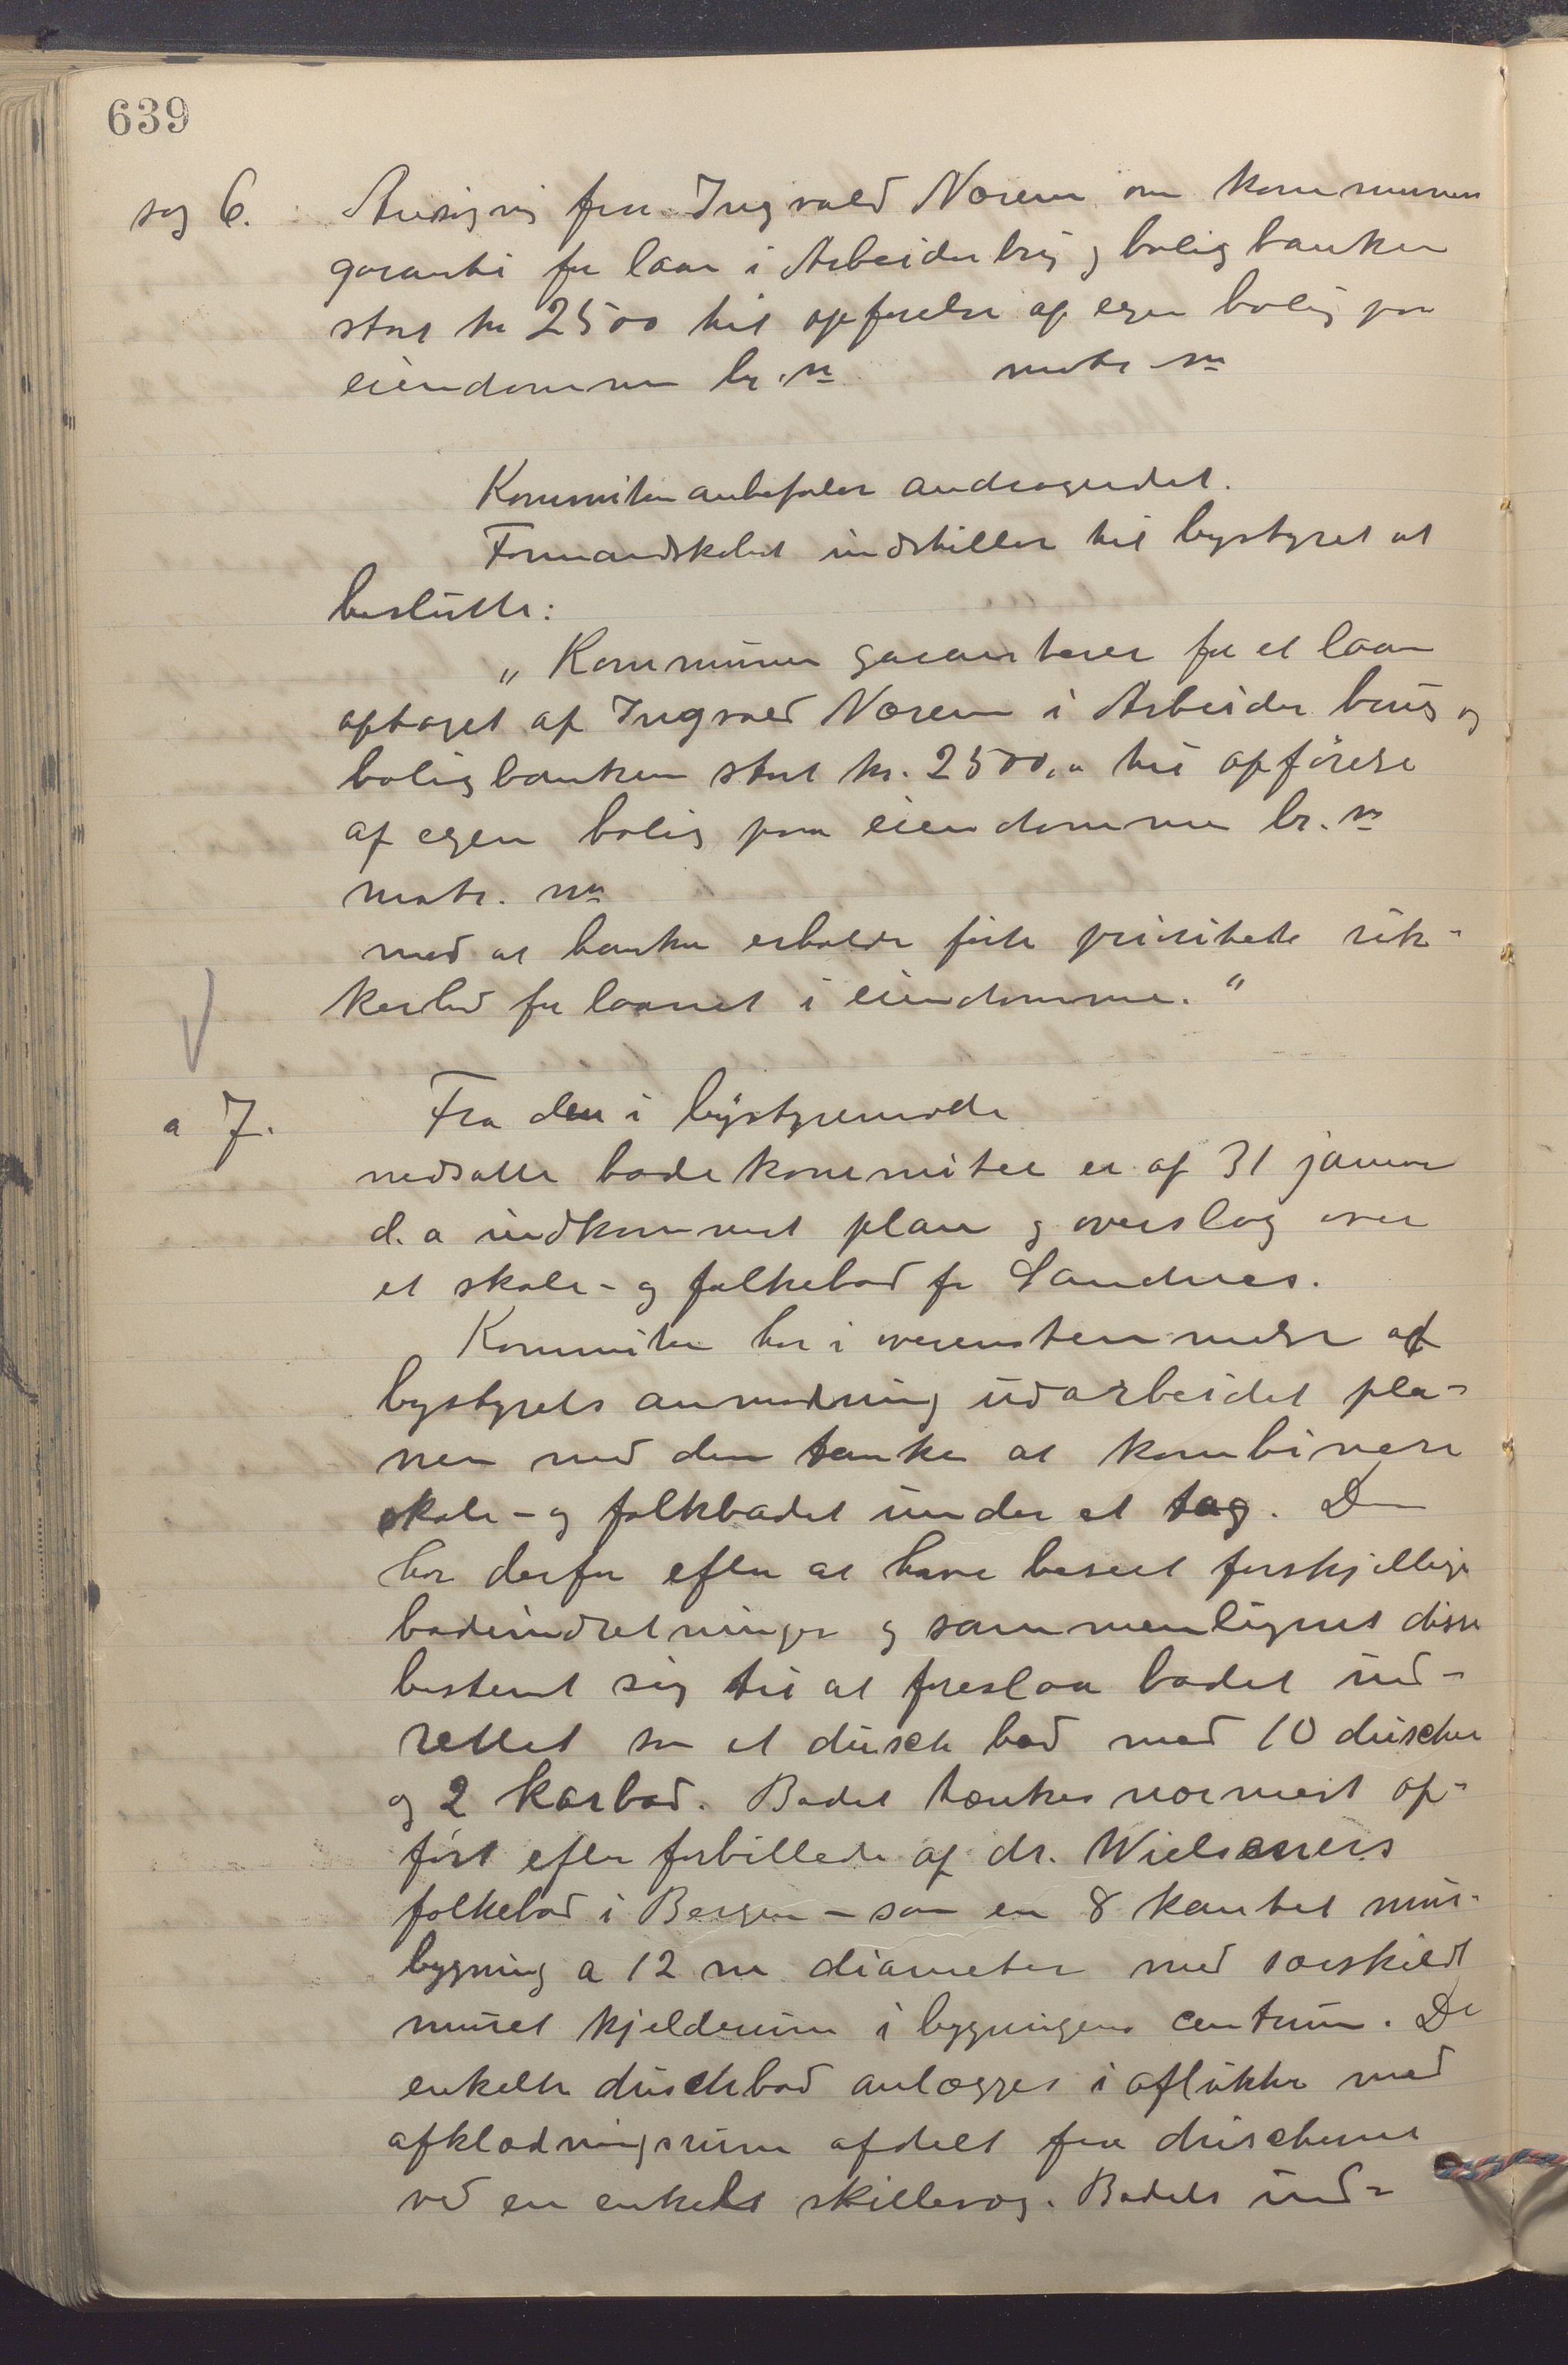 639
sag 6. Ansøgning fra Ingvald Norem om kommunens
garanti for laan i Arbeiderbrug og boligbanken
stort kr 2500 til opførelse af egen bolig paa
eiendommen br. no matr no
Kommiteen anbefaler andragendet.
Formandskabet indstiller til bystyret at
beslutte:
„Kommunen garanterer for et laan
optaget af Ingvald Norem i Arbeider brug og
boligbanken stort kr. 2500,00 til opførelse
af egen bolig paa eiendommen br. no
matr. no
mod at banken erholder første prioritets sik-
kerhed for laanet i eiendommen."
a 7. Fra den i bystyremøde
nedsatte badekommitee er af 31 januar
d. a indkommet plan og overslag over
et skole- og folkebad for Sandnes.
Kommiteen har i overensstemmelse af
bystyrets anmodning udarbeidet pla-
nen med den tanke at kombinere
skole- og folkbadet under et tag. Den
har derfor efter at have beseet forskjellige
badeindretninger og sammenlignet disse
bestemt sig til at foreslaa badet ind-
rettet som et dusch bad med 10 duscher
og 2 karbad. Badet tænkes nærmest op-
ført efter forbillede af dr. Wielseners
folkebad i Bergen - som en 8 kantet mur-
bygning a 12 m diameter med særskildt
muret kjelderum i bygningens centrum. De
enkelte duschbad anlægges i aflukker med
afklædningsrum afdelt fra duscherne
ved en enkelt skillevæg. Badets ind-